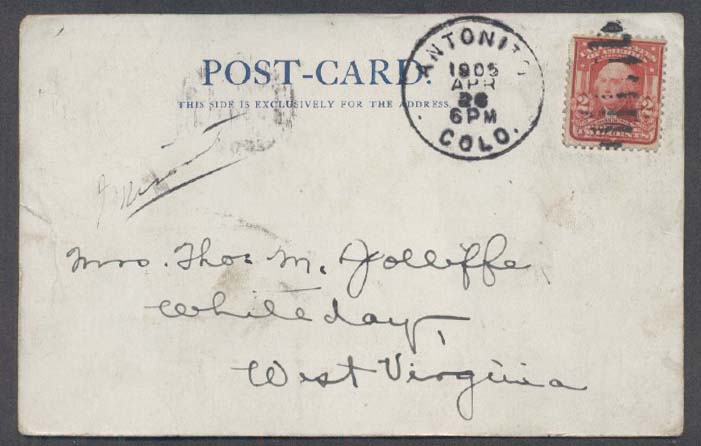 POST-CARD.
THIS SIDE IS EXCLUSIVELY FOR THE ADDRESS.
ANTONITO
1905
APR
26
6PM
COLO.
2 2
Mrs. Thos. M. Jolliffe
Whiteday,
West Virginia